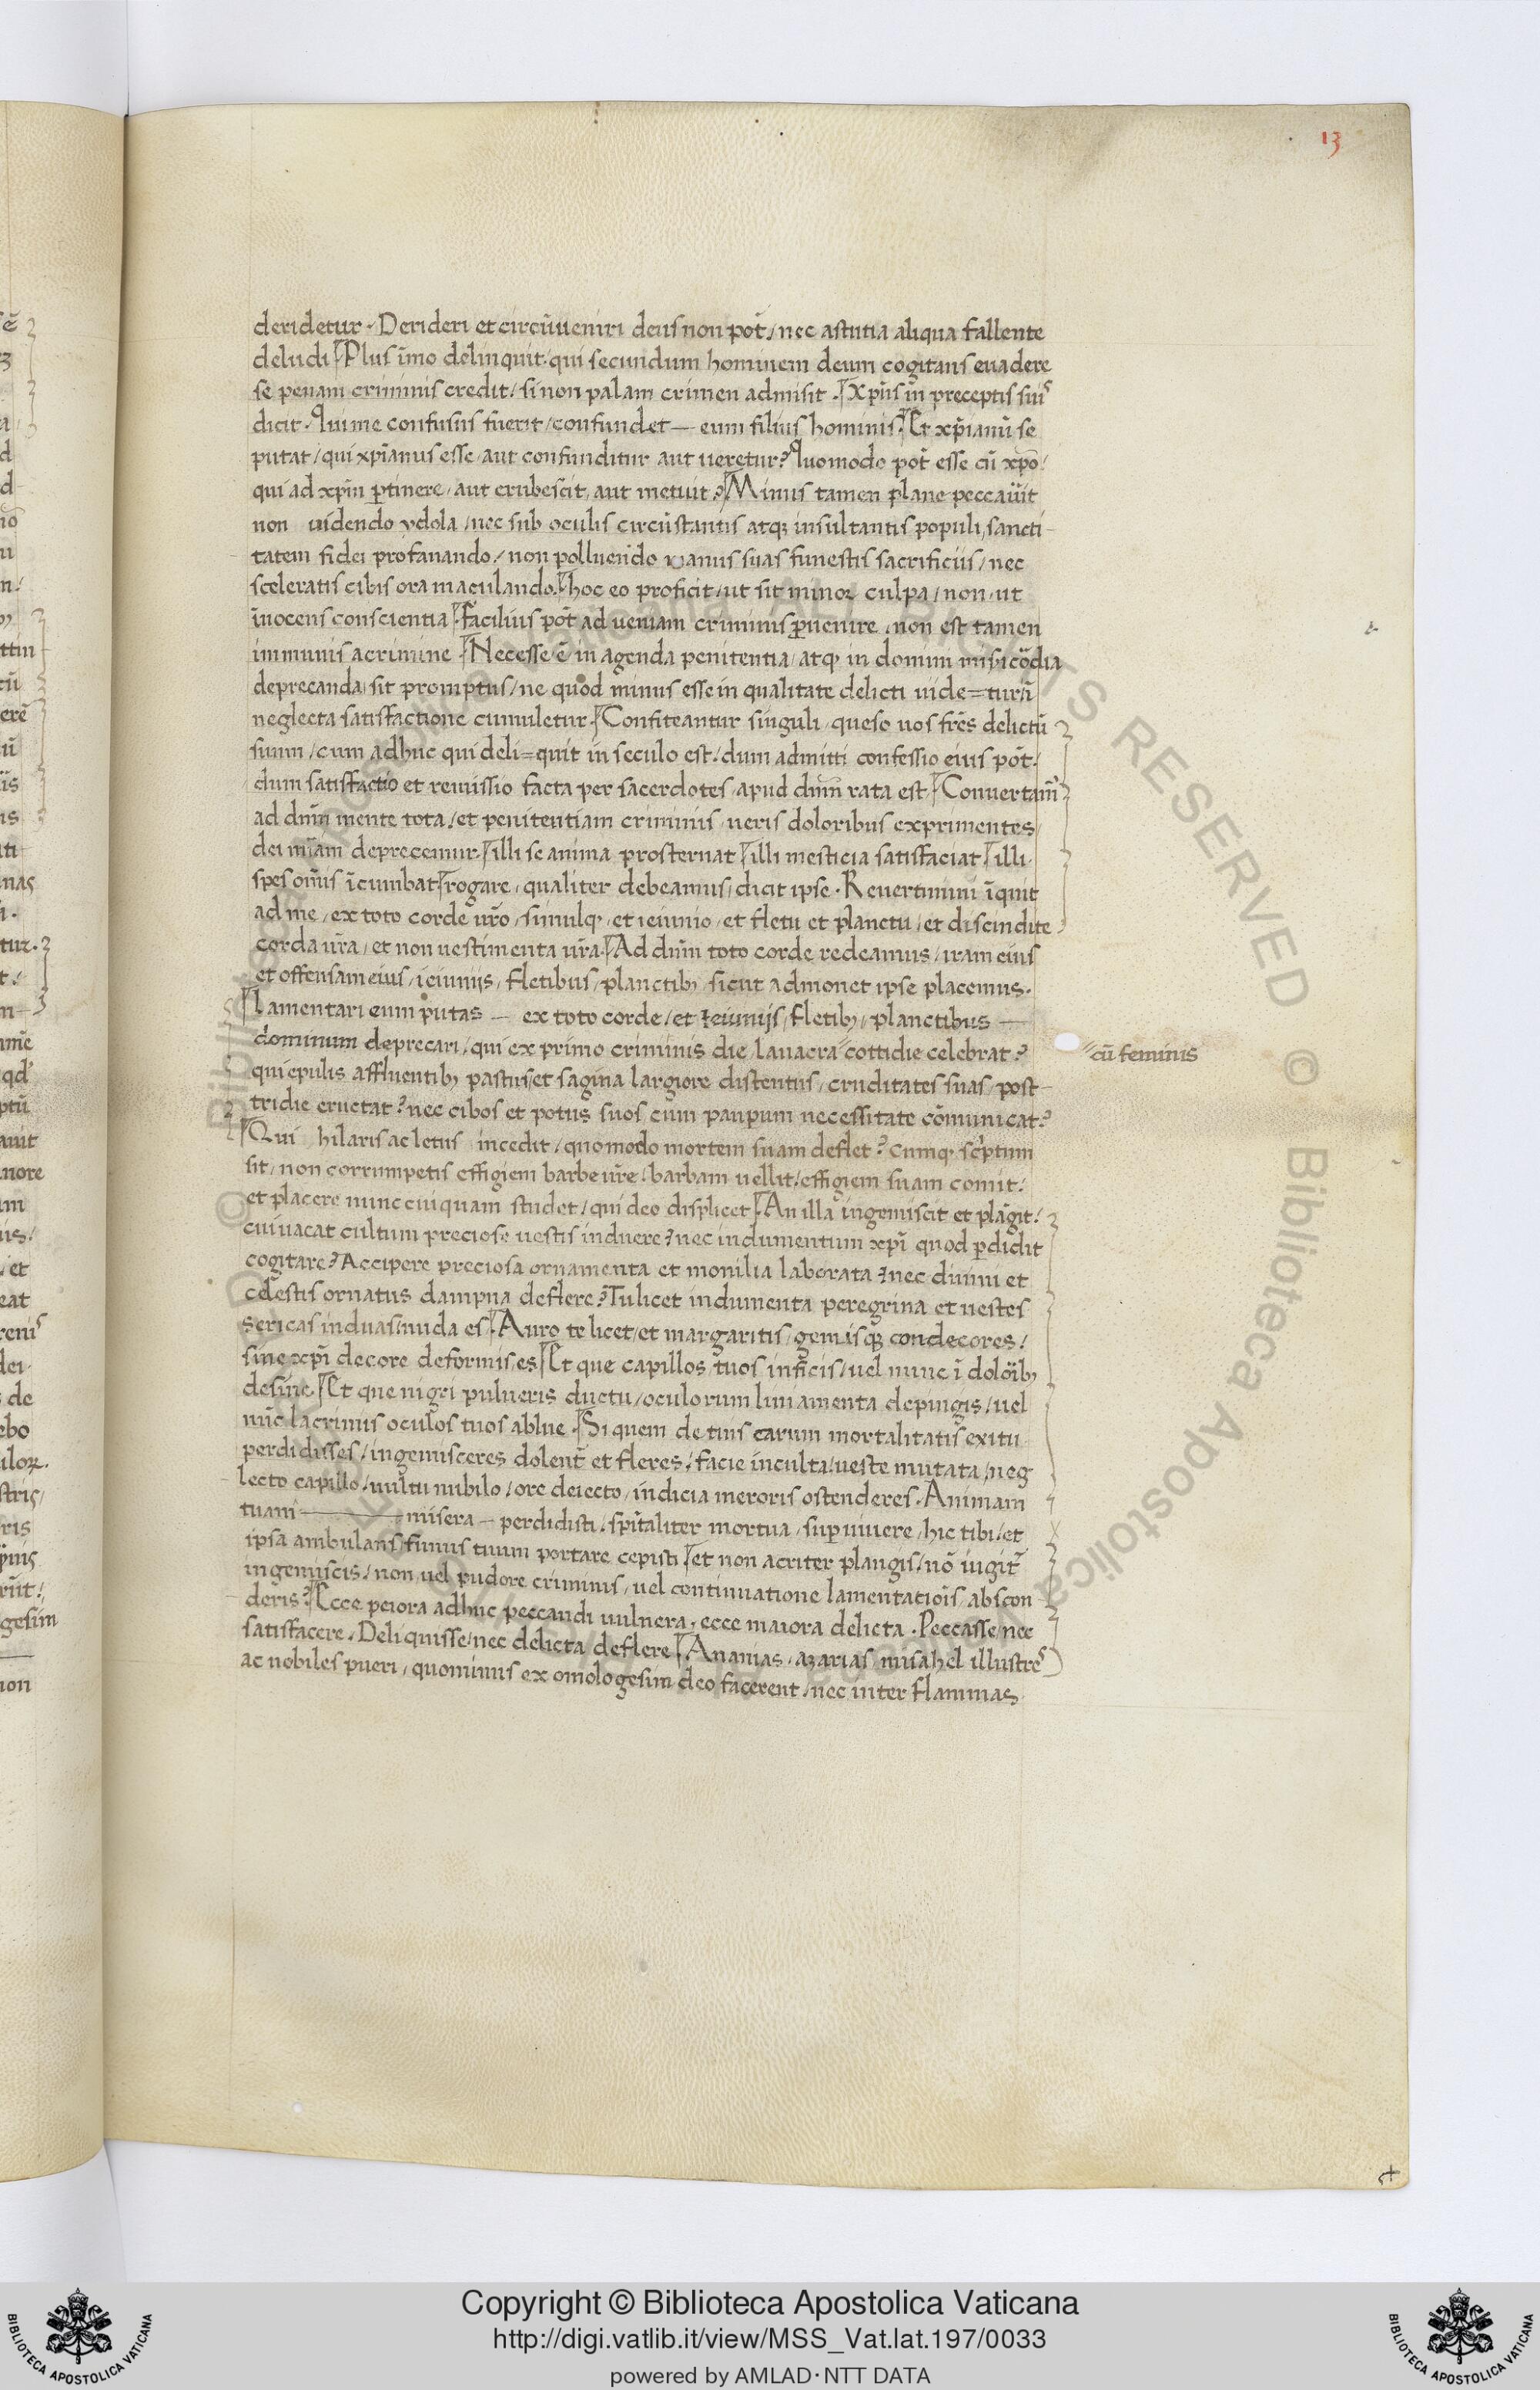 13
deridetur. Derideri et circũueniri deus non pot̃/ nec astutia aliqua fallente
deludi. Plus ĩmo delinquit. qui secundum hominem deum cogitans euadere
se penam criminis credit/ si non palam crimen admisit. Xp̃us in preceptis suis
dicit. Qui me confusus fuerit/ confundet — eum filius hominis. Et xp̃ianũ se
putat/ qui xp̃ianus esse/ aut confunditur aut ueretur? Quomodo pot̃ esse cũ xp̃o/
qui ad xp̃m ꝑtinere/ aut erubescit/ aut metuit? Minus tamen plane peccauit
non uidendo ydola/ nec sub oculis circũstantis atqꝫ insultantis populi/ sancti-
tatem fidei profanando/ non polluendo manus suas funestis sacrificiis/ nec
sceleratis cibis ora maculando. hoc eo proficit/ ut sit minor culpa/ non ut
ĩnocens conscientia. Facilius pot̃ ad ueniam criminis ꝑuenire/ non est tamen
immunis a crimine. Necesse ẽ in agenda penitentia/ atqꝫ in domini mĩsicõdia
deprecanda/ sit promptus/ ne quod minus esse in qualitate delicti uide=tur/ ĩ
neglecta satisfactione cumuletur. Confiteantur singuli/ queso uos fr̃es delictũ
suum/ cum adhuc qui deli=quit in seculo est/ dum admitti confessio eius pot̃/
dum satisfactio et remissio facta per sacerdotes/ apud dñm rata est. Conuertam̃
ad dñm mente tota/ et penitentiam criminis ueris doloribus exprimentes/
dei mĩam deprecemur. illi se anima prosternat. illi mesticia satisfaciat. illi
spes om̃is ĩcumbat. rogare/ qualiter debeamus/ dicit ipse. Reuertimini ĩquit
ad me/ ex toto corde ur̃o/ simulqꝫ et ieiunio/ et fletu et planctu/ et discindite
corda ur̃a/ et non uestimenta ur̃a. Ad dñm toto corde redeamus/ iram eius
et offensam eius/ ieiunijs/ fletibus/ planctibꝫ sicut admonet ipse placemus.
Lamentari eum putas — ex toto corde/ et ieiunijs/ fletibꝫ/ planctibus —
dominum deprecari/ qui ex primo criminis die/ lauacra cottidie celebrat?
cũ feminis
qui epulis affluentibꝫ pastus/ et sagina largiore distentus/ cruditates suas/ post-
tridie eructat? nec cibos et potus suos cum pauꝑum necessitate cõmunicat?
Qui hilaris ac letus incedit/ quomodo mortem suam deflet? Cumqꝫ sc̃ptum
sit/ non corrumpetis effigiem barbe ur̃e/ barbam uellit/ effigiem suam comit/
et placere nunc cuiquam studet/ qui deo displicet. An illa ingemiscit et plãgit/
cui uacat cultum preciose uestis induere? nec indumentum xp̃i quod ꝑdidit
cogitare? Accipere preciosa ornamenta et monilia laborata? nec diuini et
celestis ornatus dampna deflere? Tu licet indumenta peregrina et uestes
sericas induas/ nuda es. Auro te licet/ et margaritis/ gemisqꝫ condecores/
sine xp̃i decore deformis es. Et que capillos tuos inficis/ uel nunc ĩ dolor̃ibꝫ
desine. Et que nigri pulueris ductu/ oculorum liniamenta depingis/ uel
nũc lacrimis oculos tuos ablue. Si quem de tuis carum mortalitatis exitu
perdidisses/ ingemisceres dolent̃ et fleres/ facie inculta/ ueste mutata/ neg
lecto capillo/ uultu nubilo/ ore deiecto/ indicia meroris ostenderes. Animam
tuam — misera — perdidisti/ sp̃italiter mortua/ suꝑuiuere/ hic tibi/ et
ipsa ambulans/ funus tuum portare cepisti. et non acriter plangis/ nõ iugit̃
ingemiscis/ non uel pudore criminis/ uel continuatione lamentatiõis abscon
deris? Ecce peiora adhuc peccandi uulnera/ ecce maiora delicta. Peccasse/ nec
satisfacere. Deliquisse/ nec delicta deflere. Ananias/ azarias/ misahel illustres
ac nobiles pueri/ quominus exomologesim deo facerent/ nec inter flammas
Copyright © Biblioteca Apostolica Vaticana
http://digi.vatlib.it/view/MSS_Vat.lat.197/0033
powered by AMLAD·NTT DATA